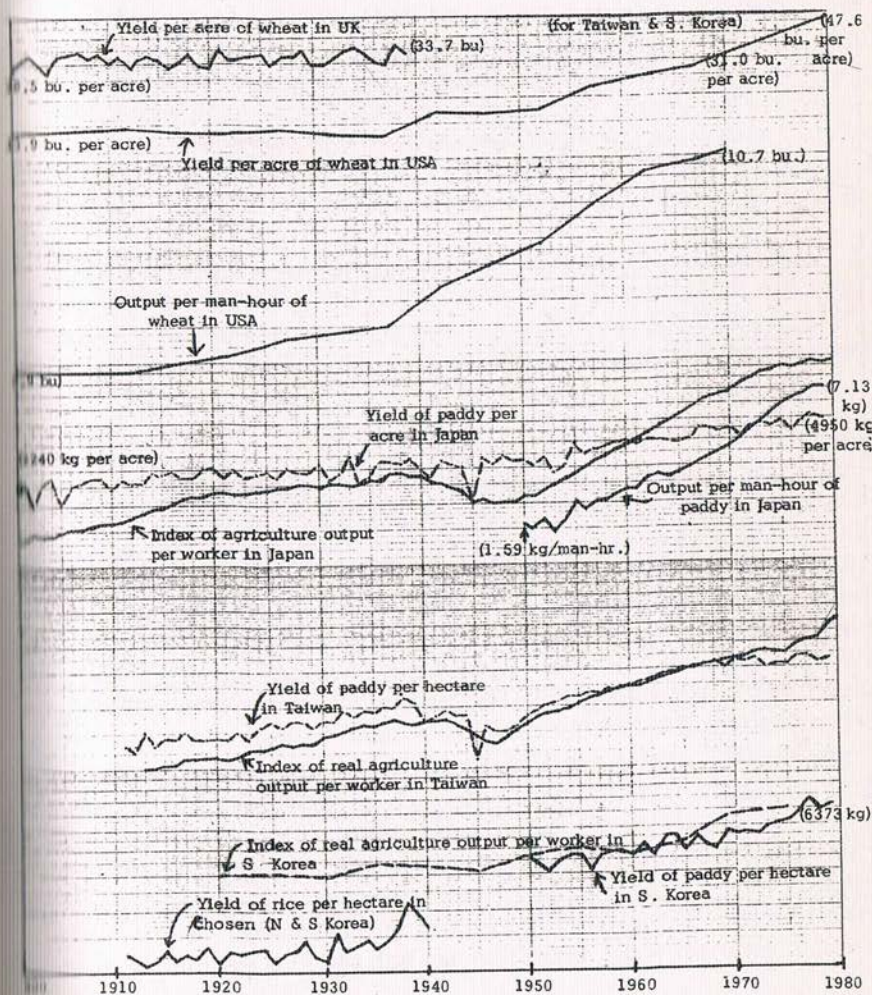 Yield per acre of wheat in UK
(for Taiwan & S. Korea)
(47.6
bu. per
acre)
(33.7 bu)
(31.0 bu.
per acre)
.5 bu. per acre)
.9 bu. per acre)
Yield per acre of wheat in USA
(10.7 bu.)
Output per man-hour of
wheat in USA
bu)
(7.13
kg)
Yield of paddy per
acre in Japan
(4950 kg
per acre
240 kg per acre)
Output per man-hour of
paddy in Japan
Index of agriculture output
per worker in Japan
(1.59 kg/man-hr.)
Yield of paddy per hectare
in Taiwan
Index of real agriculture
output per worker in Taiwan
(6373 kg)
Index of real agriculture output per worker in
S Korea
Yield of paddy per hectare
in S. Korea
Yield of rice per hectare in
Chosen (N & S Korea)
1910 1920 1930 1940 1950 1960 1970 1980